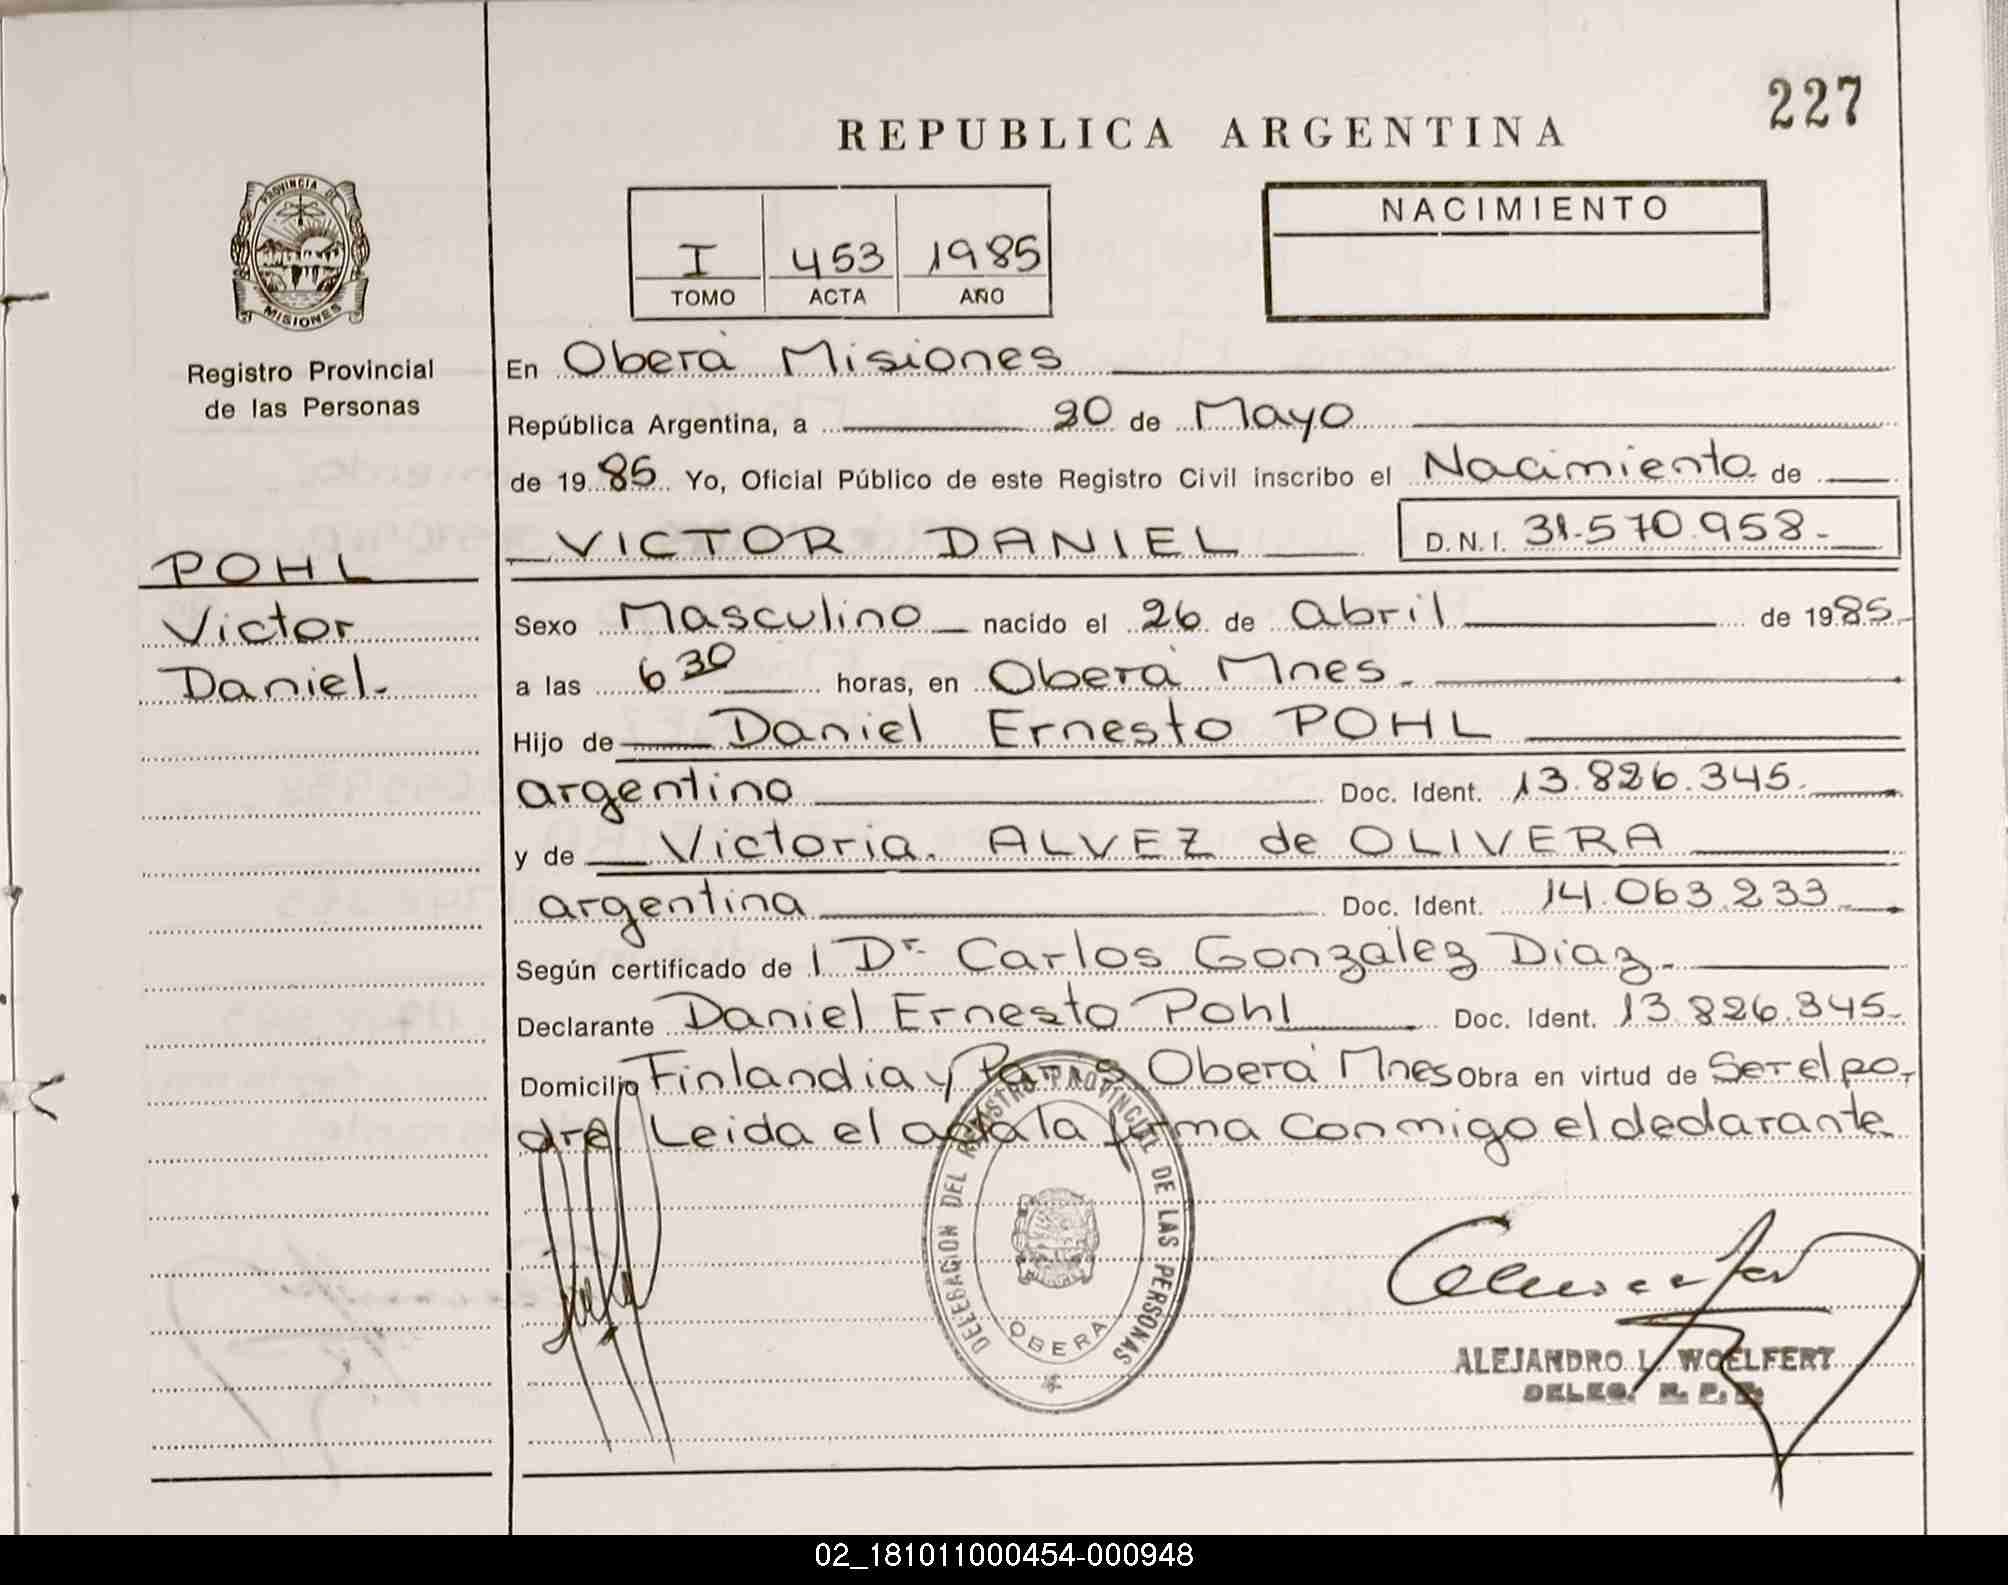 227
REPUBLICA ARGENTINA
PROVINCIA DE
MISIONES
Registro Provincial
de las Personas
I 453 1985
TOMO ACTA AÑO
NACIMIENTO
En Oberá Misiones
República Argentina, a 20 de Mayo
de 1985 Yo, Oficial Público de este Registro Civil inscribo el Nacimiento de
VICTOR DANIEL D.N.I. 31.570.958.-
POHL
Victor
Daniel.-
Sexo Masculino nacido el 26 de abril de 1985.-
a las 6 30 horas, en Oberá Mnes.
Hijo de Daniel Ernesto POHL
argentino Doc. Ident. 13.826.345.
y de Victoria. ALVEZ de OLIVERA
argentina Doc. Ident. 14.063.233
Según certificado de l Dr. Carlos Gonzalez Diaz.
Declarante Daniel Ernesto Pohl Doc. Ident. 13.826.345.
Domicilio Finlandia y Oberá Mnes Obra en virtud de Ser el pa-
dre Leida el acta la firma conmigo el declarante
DELEGACION DEL REGISTRO PROVINCIAL DE LAS PERSONAS
OBERA
ALEJANDRO L. WOELFERT
DELEG. R. P. P.
02_181011000454-000948